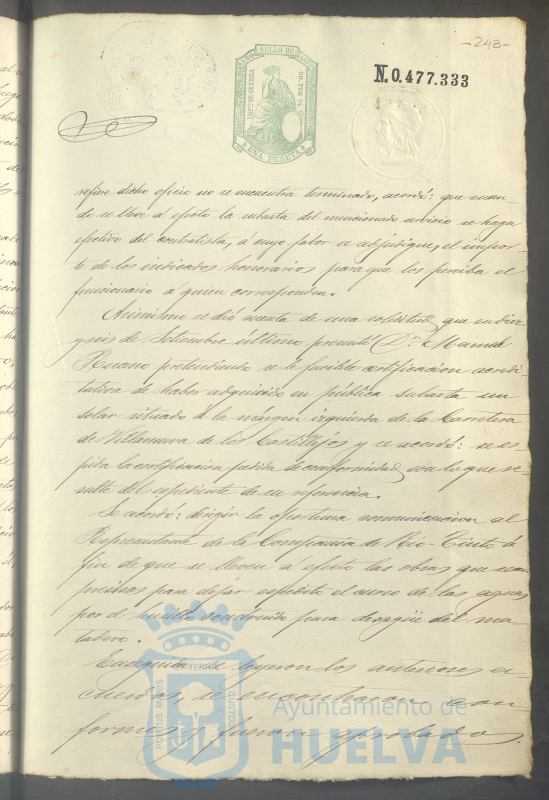 -243-
SELLO 10º
UNA PESETA
N.0.477.333
refiere dicho oficio no se encuentra terminado, acordó: que cuan
do se lleve á efecto la subasta del mencionado servicio se haga
efectivo del contratista, á cuyo fabor se adjudique, el impor-
te de los indicados honorarios para que los perciba el
funcionario á quien corresponden.
Asimismo se dió cuenta de una solicitud que en diez
y seis de Setiembre último presentó Dn. Manuel
Ruano pretendiendo se le facilite certificacion acredi-
tativa de haber adquirido en pública subasta un
solar situado á la márgen izquierda de la Carretera
de Villanueva de los Castillejos y se acordó: se es-
pida la certificacion pedida de conformidad con lo que re-
sulte del espediente de su referencia.
Se acordó: dirigir la oportuna comunicacion al
Representante de la Compañia de Rio-Tinto á
fin de que se lleven á efecto las obras que sean
precisas para dejar espedito el curso de las aguas
por el construido para desagüe del ma-
tadero.
Enseguida se leyeron los anteriores a-
cuerdos, se encontraron con
formes y fueron aprobados.
PORTUS MARIS
TERRE
CUSTODIA
Ayuntamiento de
HUELVA